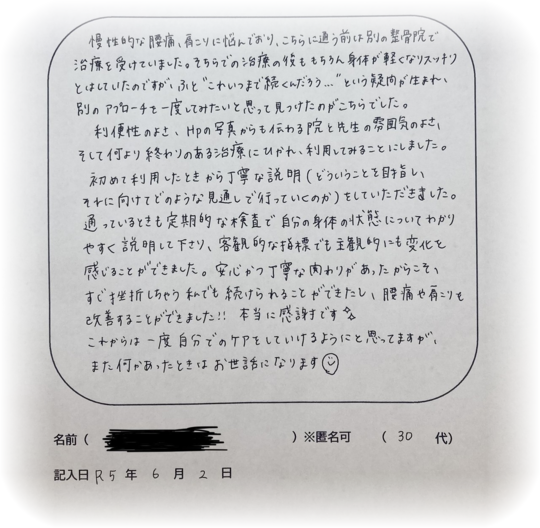 慢性的な腰痛、肩こりに悩んでおり、こちらに通う前は別の整骨院で
治療を受けていました。そちらでの治療の後ももちろん身体が軽くなりスッキリ
とはしていたのですが、ふと“これいつまで続くんだろう…”という疑問が生まれ、
別のアプローチを一度してみたいと思って見つけたのがこちらでした。
利便性のよさ、HPの写真からも伝わる院と先生の雰囲気のよさ、
そして何より終わりのある治療にひかれ、利用してみることにしました。
初めて利用したときから丁寧な説明(どういうことを目指し、
それに向けてどのような見通しで行っていくのか)をしていただきました。
通っているときも定期的な検査で自分の身体の状態についてわかり
やすく説明して下さり、客観的な指標でも主観的にも変化を
感じることができました。安心かつ丁寧な関わりがあったからこそ、
すぐ挫折しちゃう私でも続けられることができたし、腰痛や肩こりも
改善することができました!! 本当に感謝です
これからは一度自分でのケアをしていけるようにと思ってますが、
また何かあったときはお世話になります
名前( )※匿名可 ( 30 代)
記入日 R5 年 6 月 2 日